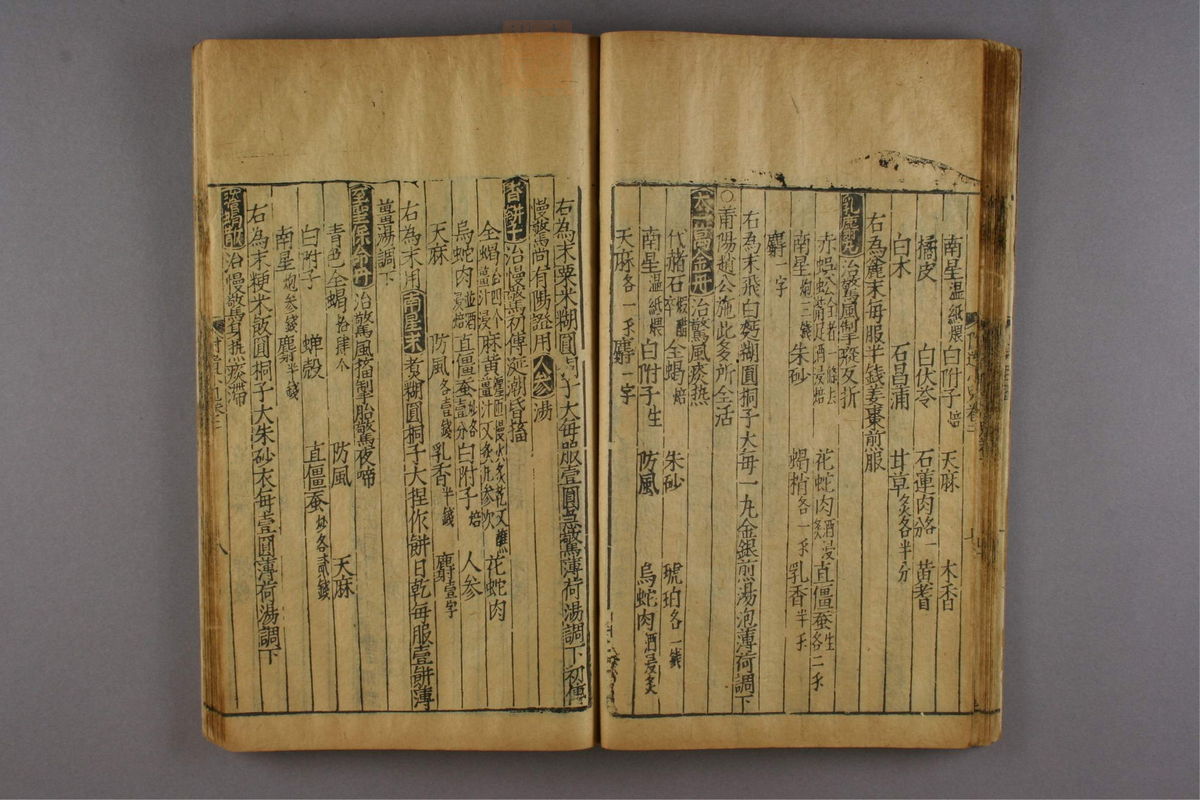 南星温紙煨 白附子焙 天麻 木香
橘皮 白伏苓 石蓮肉 一 黄耆
白术 石昌浦 甘草炙各半分
右為麄末每服半錢姜棗煎服
治驚風掣瘲反折
赤蜈蚣全者一條 酒浸焙 花蛇肉酒浸炙 直僵蚕生各二子
南星炮三錢 朱砂 蝎梢各一子 乳香半子
麝一字
右為末飛白麪糊圓桐子大每一丸金銀煎湯泡薄荷調下
○莆陽趙公施此多所全活
太一萬金丹治驚風痰熱
代赭石煅醋淬 全蝎焙 朱砂 琥珀各一錢
南星温紙煨 白附子生 防風 烏蛇肉酒浸炙
天麻各一子 麝一字
右為末粟米糊圓桐子大每服壹圓急驚薄荷湯調下初傳
慢驚尚有陽證用人參湯
香餅子治慢驚初傳涎潮昏搐
全蝎 四个薑汁浸 麻黄 薑汁又炙 花蛇肉
烏蛇肉並酒浸焙 直僵蚕 各壹分 白附子焙 人参
天麻 防風各壹錢 乳香半錢 麝壹字
右為末用南星末煮糊圓桐子大捏作餅日乾每服壹餅薄
薑湯調下
至聖保命丹治驚風搐掣胎驚夜啼
青色全蝎拾肆个 防風 天麻
白附子 蝉殼 直僵蚕炒各貳錢
南星炮参錢 麝半錢
右為末粳米飯圓桐子大朱砂衣每壹圓薄荷湯調下
治慢驚 痰滯